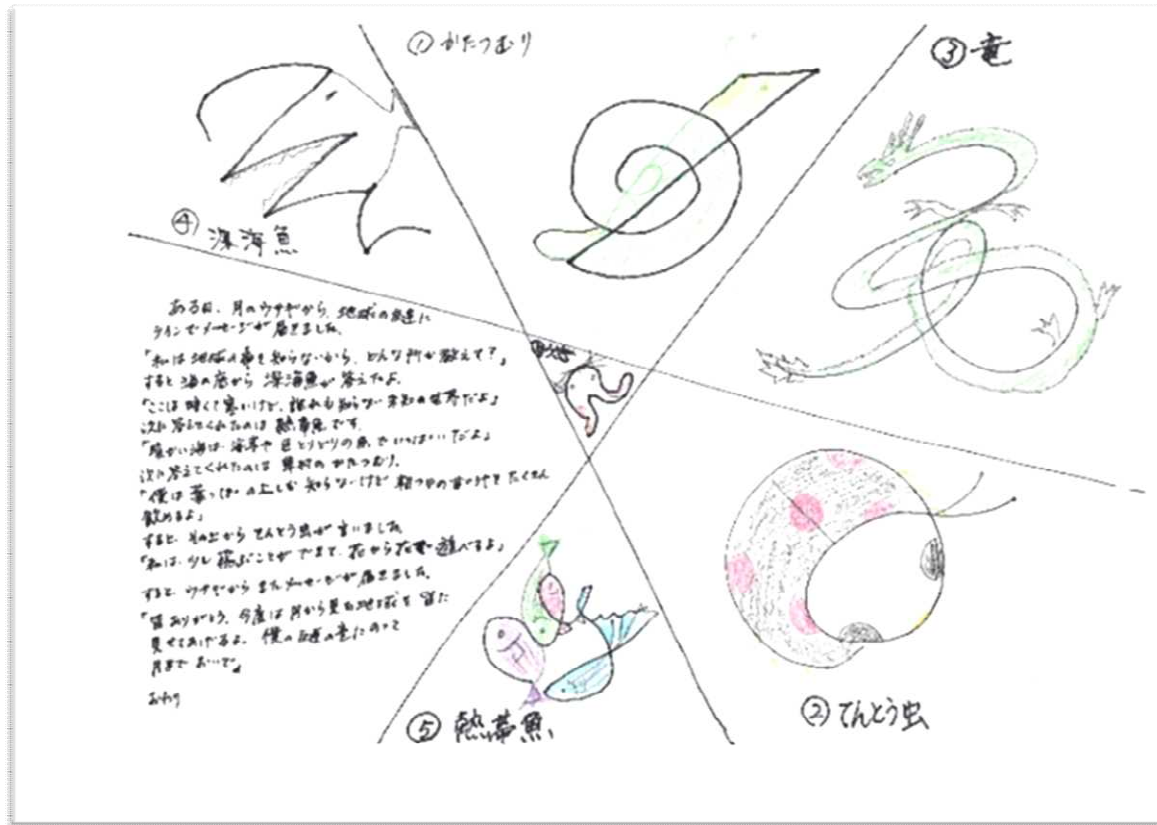 ① かたつむり
③ 竜
④ 深海魚
ある日、月のウサギから、地球の友達に
ラインでメッセージが届きました。
「私は地球の事を知らないから、どんな所か教えて?」
すると海の底から 深海魚が答えたよ。
「ここは暗くて寒いけど、誰れも知らない未知の世界だよ」
次に答えてくれたのは 熱帯魚です。
「暖かい海は 海草や色とりどりの魚でいっぱいだよ」
次に答えてくれたのは のかたつむり。
「僕は葉っぱの上しか知らないけど 朝つゆの甘い汁をたくさん
飲めるよ」
すると、その上から てんとう虫が言いました
「私は、少し飛ぶことができて、花から花 遊べるよ」
すると ウサギからまたメッセージが届きました。
「皆ありがとう、今度は月から見る地球を皆に
見せてあげるよ。僕の友達の竜にのって
月まで おいで」
おわり
⑤ 熱帯魚
② てんとう虫